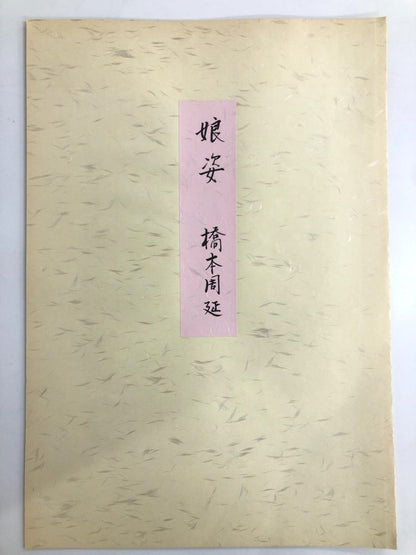 娘姿　橋本周延